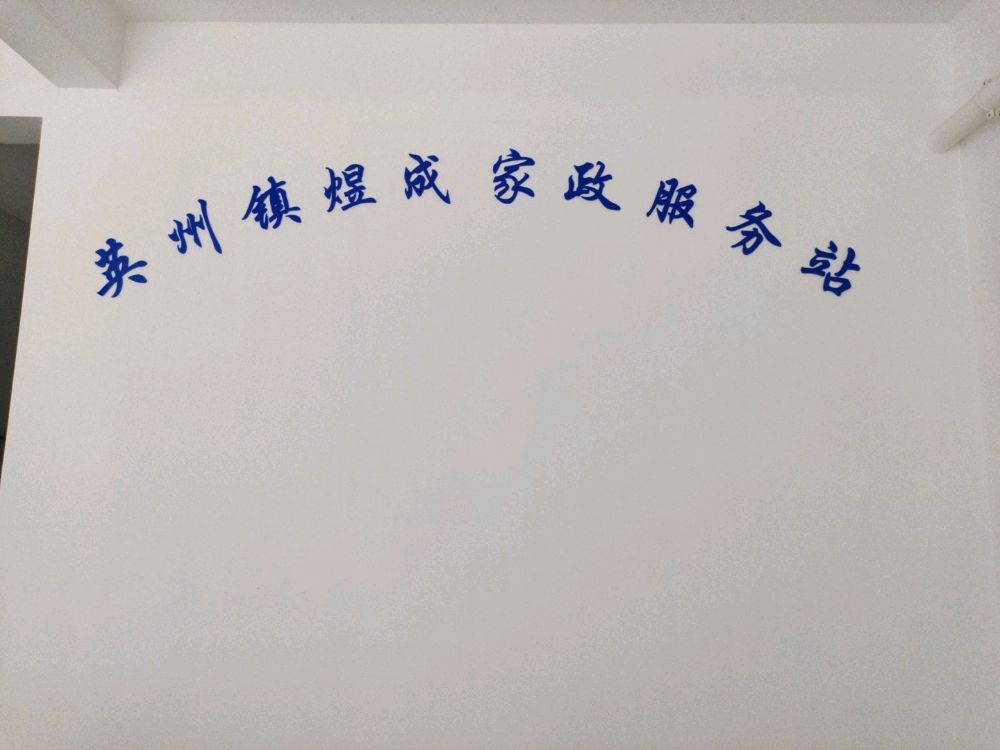 英州镇煜成家政服务站